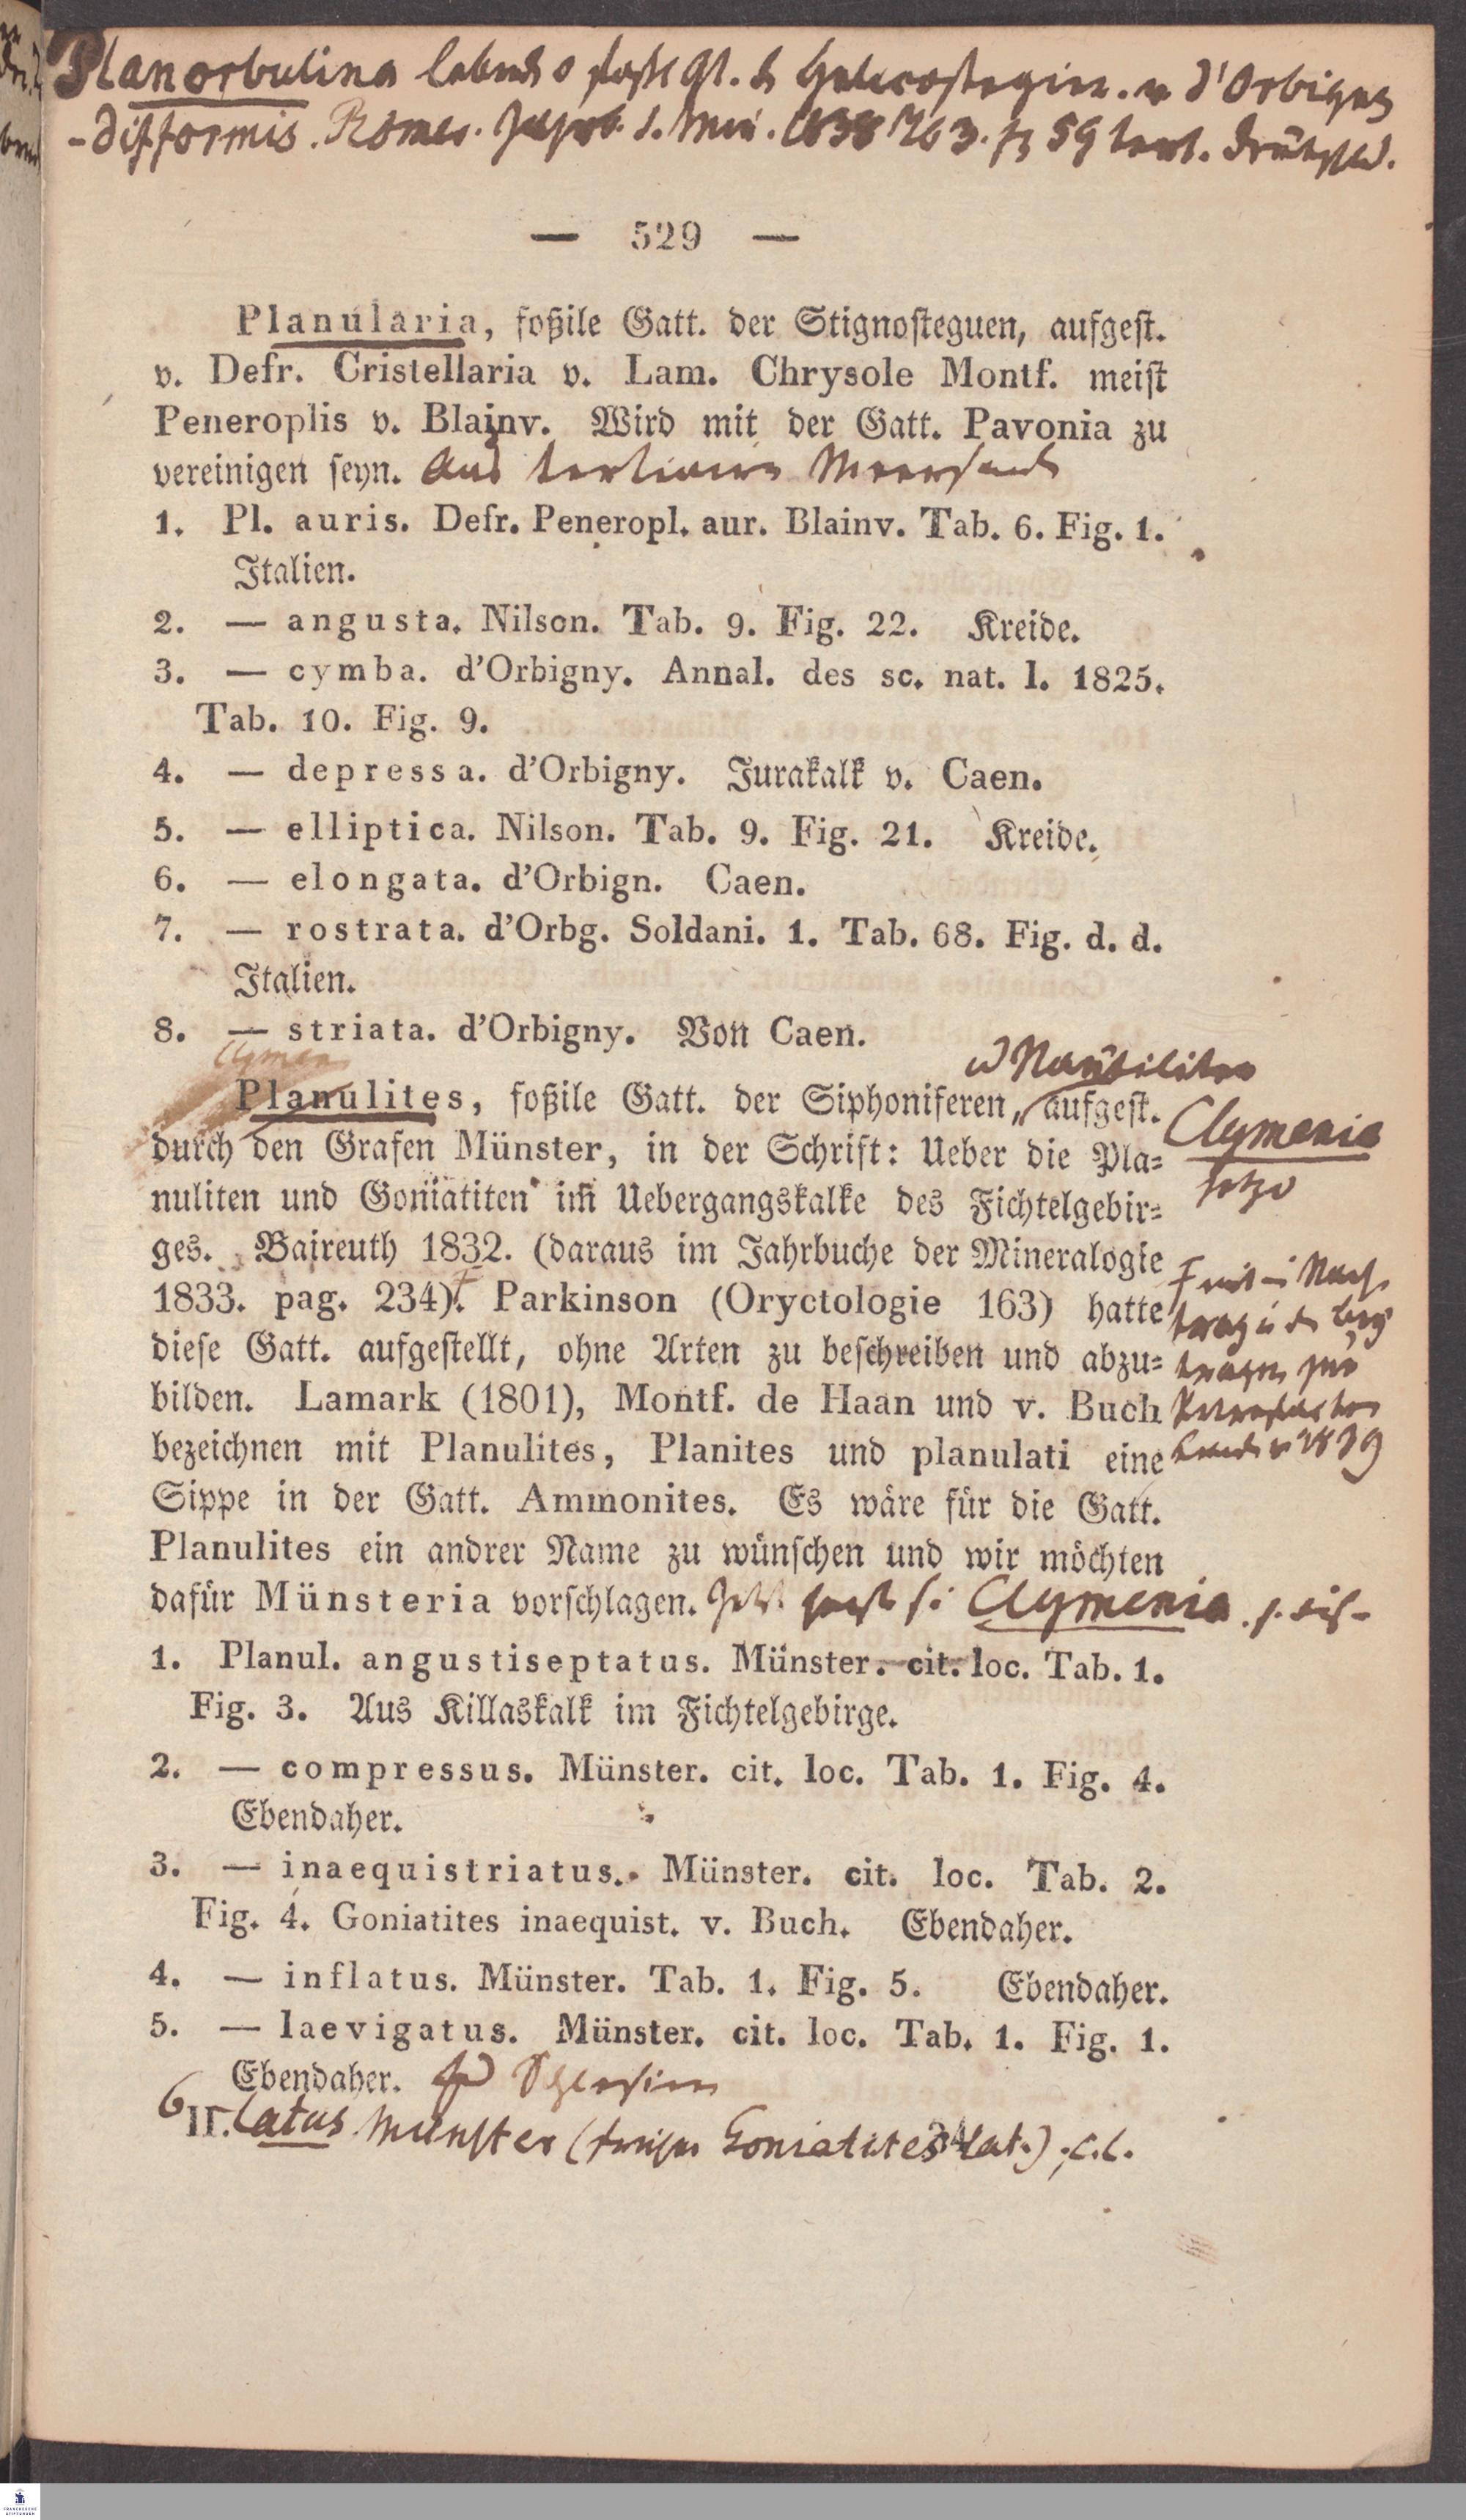 Planorbulina
d'Orbigny
- difformis. Römer. 1838
— 529 —
Planularia, foßile Gatt. der Stignosteguen, aufgest.
v. Defr. Cristellaria v. Lam. Chrysole Montf. meist
Peneroplis v. Blainv. Wird mit der Gatt. Pavonia zu
vereinigen seyn. Aus tertiairem Meersand
1. Pl. auris. Defr. Peneropl. aur. Blainv. Tab. 6. Fig. 1.
Italien.
2. — angusta. Nilson. Tab. 9. Fig. 22. Kreide.
3. — cymba. d'Orbigny. Annal. des sc. nat. l. 1825.
Tab. 10. Fig. 9.
4. — depressa. d'Orbigny. Jurakalk v. Caen.
5. — elliptica. Nilson. Tab. 9. Fig. 21. Kreide.
6. — elongata. d'Orbign. Caen.
7. — rostrata. d'Orbg. Soldani. 1. Tab. 68. Fig. d. d.
Italien.
8. — striata. d'Orbigny. Von Caen.
Clymen
Nautiliten
Planulites, foßile Gatt. der Siphoniferen, aufgest.
Clymenia
durch den Grafen Münster, in der Schrift: Ueber die Pla⸗
nuliten und Goniatiten im Uebergangskalke des Fichtelgebir⸗
ges. Baireuth 1832. (daraus im Jahrbuche der Mineralogie
1833. pag. 234). Parkinson (Oryctologie 163) hatte
diese Gatt. aufgestellt, ohne Arten zu beschreiben und abzu⸗
bilden. Lamark (1801), Montf. de Haan und v. Buch
bezeichnen mit Planulites, Planites und planulati eine
1839
Sippe in der Gatt. Ammonites. Es wäre für die Gatt.
Planulites ein andrer Name zu wünschen und wir möchten
dafür Münsteria vorschlagen. Clymenia
1. Planul. angustiseptatus. Münster. cit. loc. Tab. 1.
Fig. 3. Aus Killaskalk im Fichtelgebirge.
2. — compressus. Münster. cit. loc. Tab. 1. Fig. 4.
Ebendaher.
3. — inaequistriatus. Münster. cit. loc. Tab. 2.
Fig. 4. Goniatites inaequist. v. Buch. Ebendaher.
4. — inflatus. Münster. Tab. 1. Fig. 5. Ebendaher.
5. — laevigatus. Münster. cit. loc. Tab. 1. Fig. 1.
Ebendaher.
6 latus Münster Goniatites lat.) c. l.
34
II.
FRANCKESCHE STIFTUNGEN